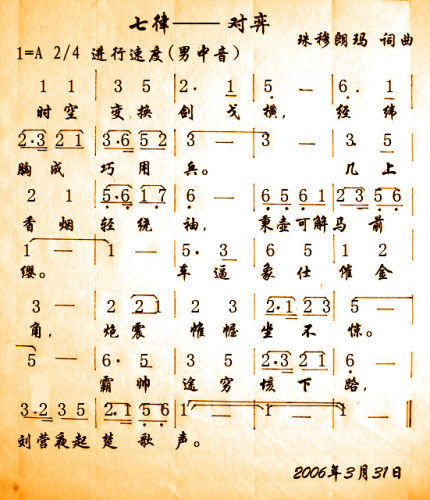 七律——对弈
珠穆朗玛 词曲
1=A 2/4 进行速度(男中音)
1 1 | 3 5 | 2· 1 | 5 — | 6· 1 |
时空 变换 剑戈 横, 经纬
2·3 2 1 | 3·6 5 2 | 3 — | 3 — | 3 5 |
胸成 巧用 兵。 几上
2 1 | 5·6 1 7 | 6 — | 6 5 6 1 | 2 3 5 6 |
香烟 轻绕 袖, 東壶可解马前
1 — | 1 — | 5· 3 | 6 5 | 1 2 |
缨。 车逼 象仕 催金
3 — | 2 2 1 | 2 3 | 2·1 2 3 | 5 — |
角, 炮震 帷幄 坐不 惊。
5 — | 6· 5 | 3 5 | 2·3 2 1 | 6 — |
霸帅 途穷 垓下 路,
3·2 3 5 | 2·1 5 6 | 1 — | 1 — | 1 — |
刘营夜起 楚歌 声。
2006年3月31日